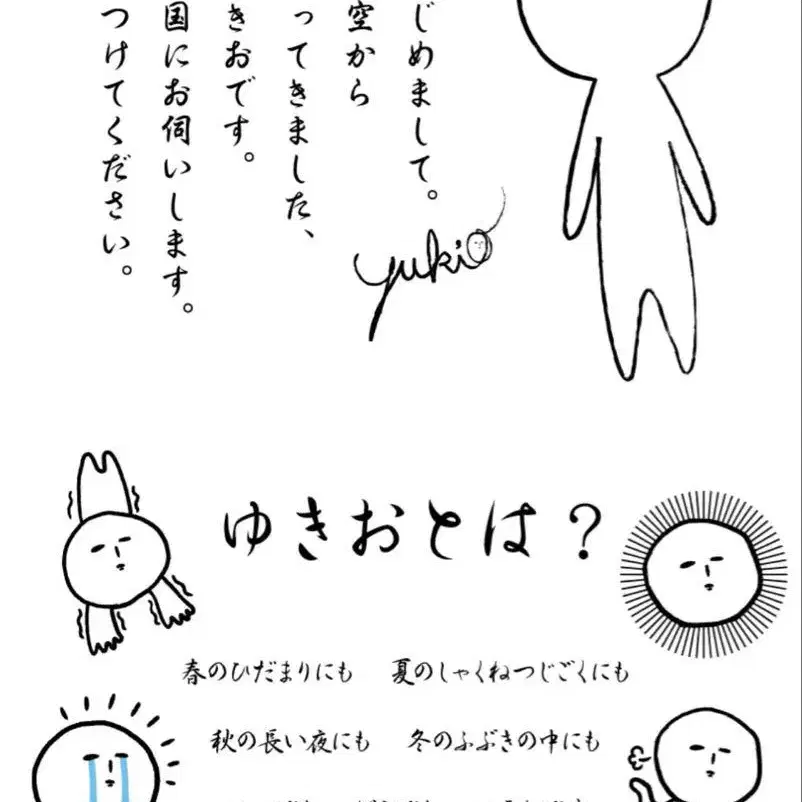 じめまして。
空から
ってきました、
きおです。
国にお伺いします。
つけてください。
yukio
ゆきおとは？
春のひだまりにも 夏のしゃくねつじごくにも
秋の長い夜にも 冬のふぶきの中にも